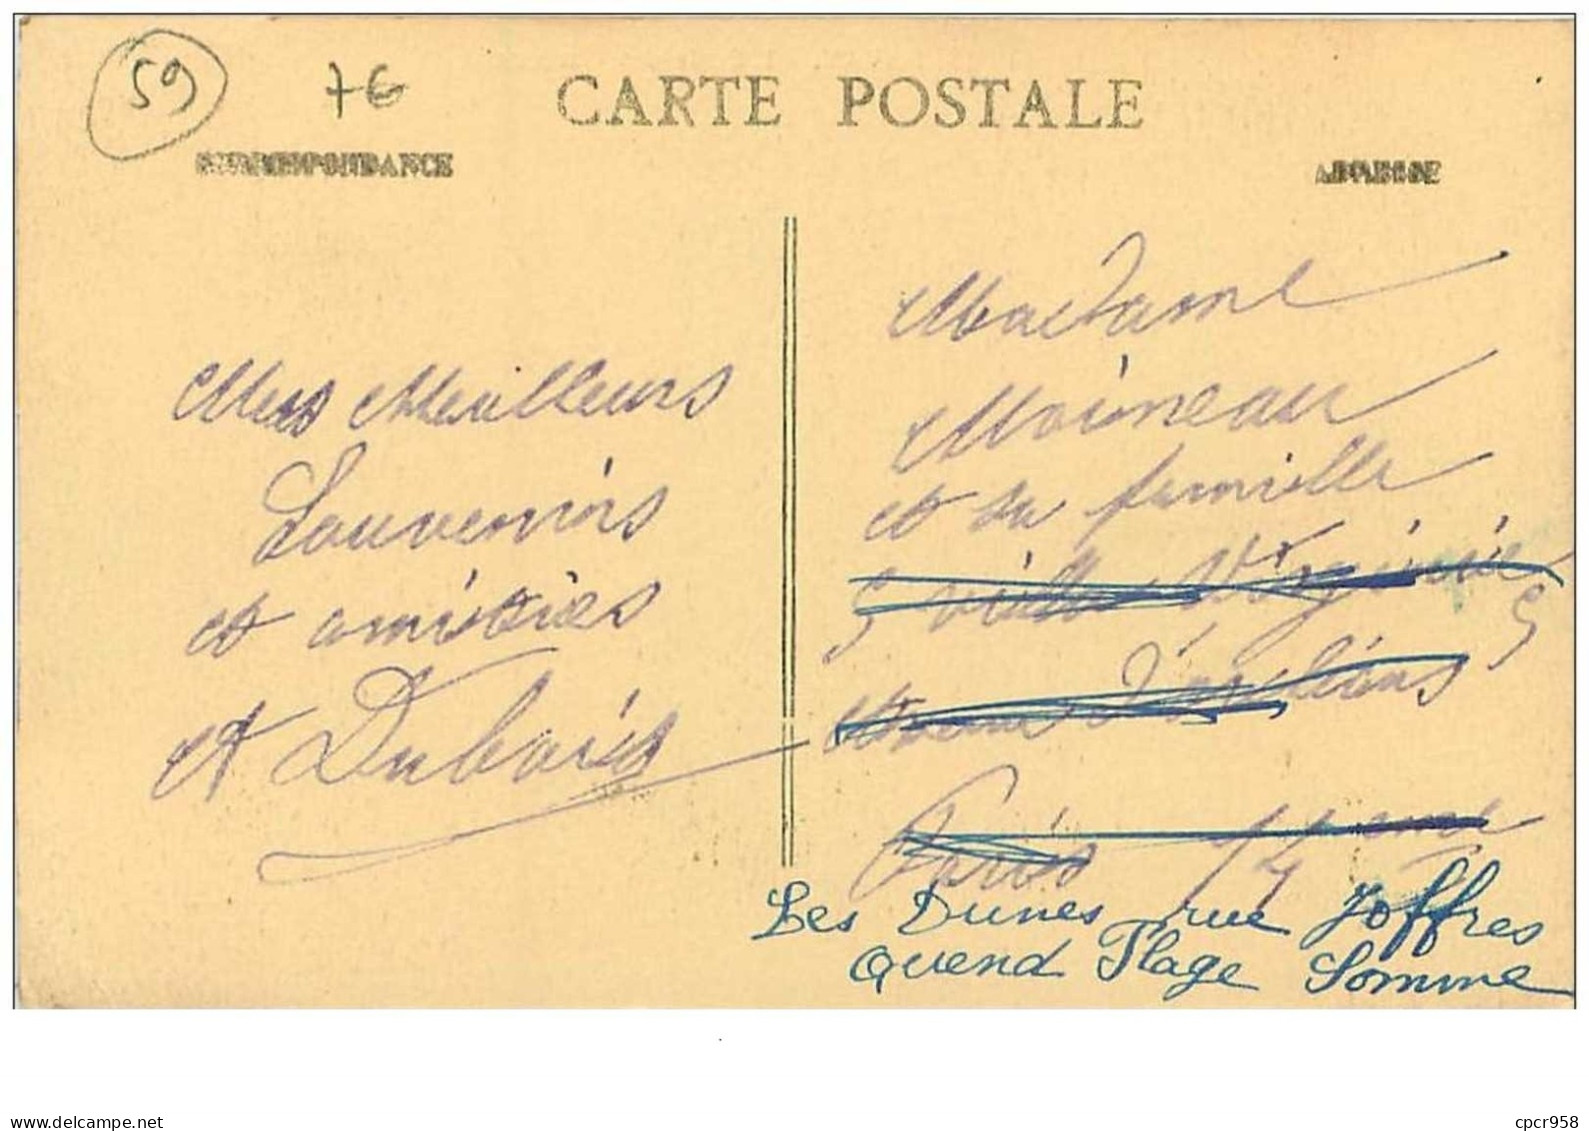 59
7€
CARTE POSTALE
CORRESPONDANCE
ADRESSE
Mes Meilleurs
Souvenirs
et amitiés
et Dubois
Madame
Moineau
et sa famille
5 villa Virginie 5
d'orléans
Paris 14 eme
Les Dunes rue Joffres
Quend Plage Somme
www.delcampe.net
cpcr958